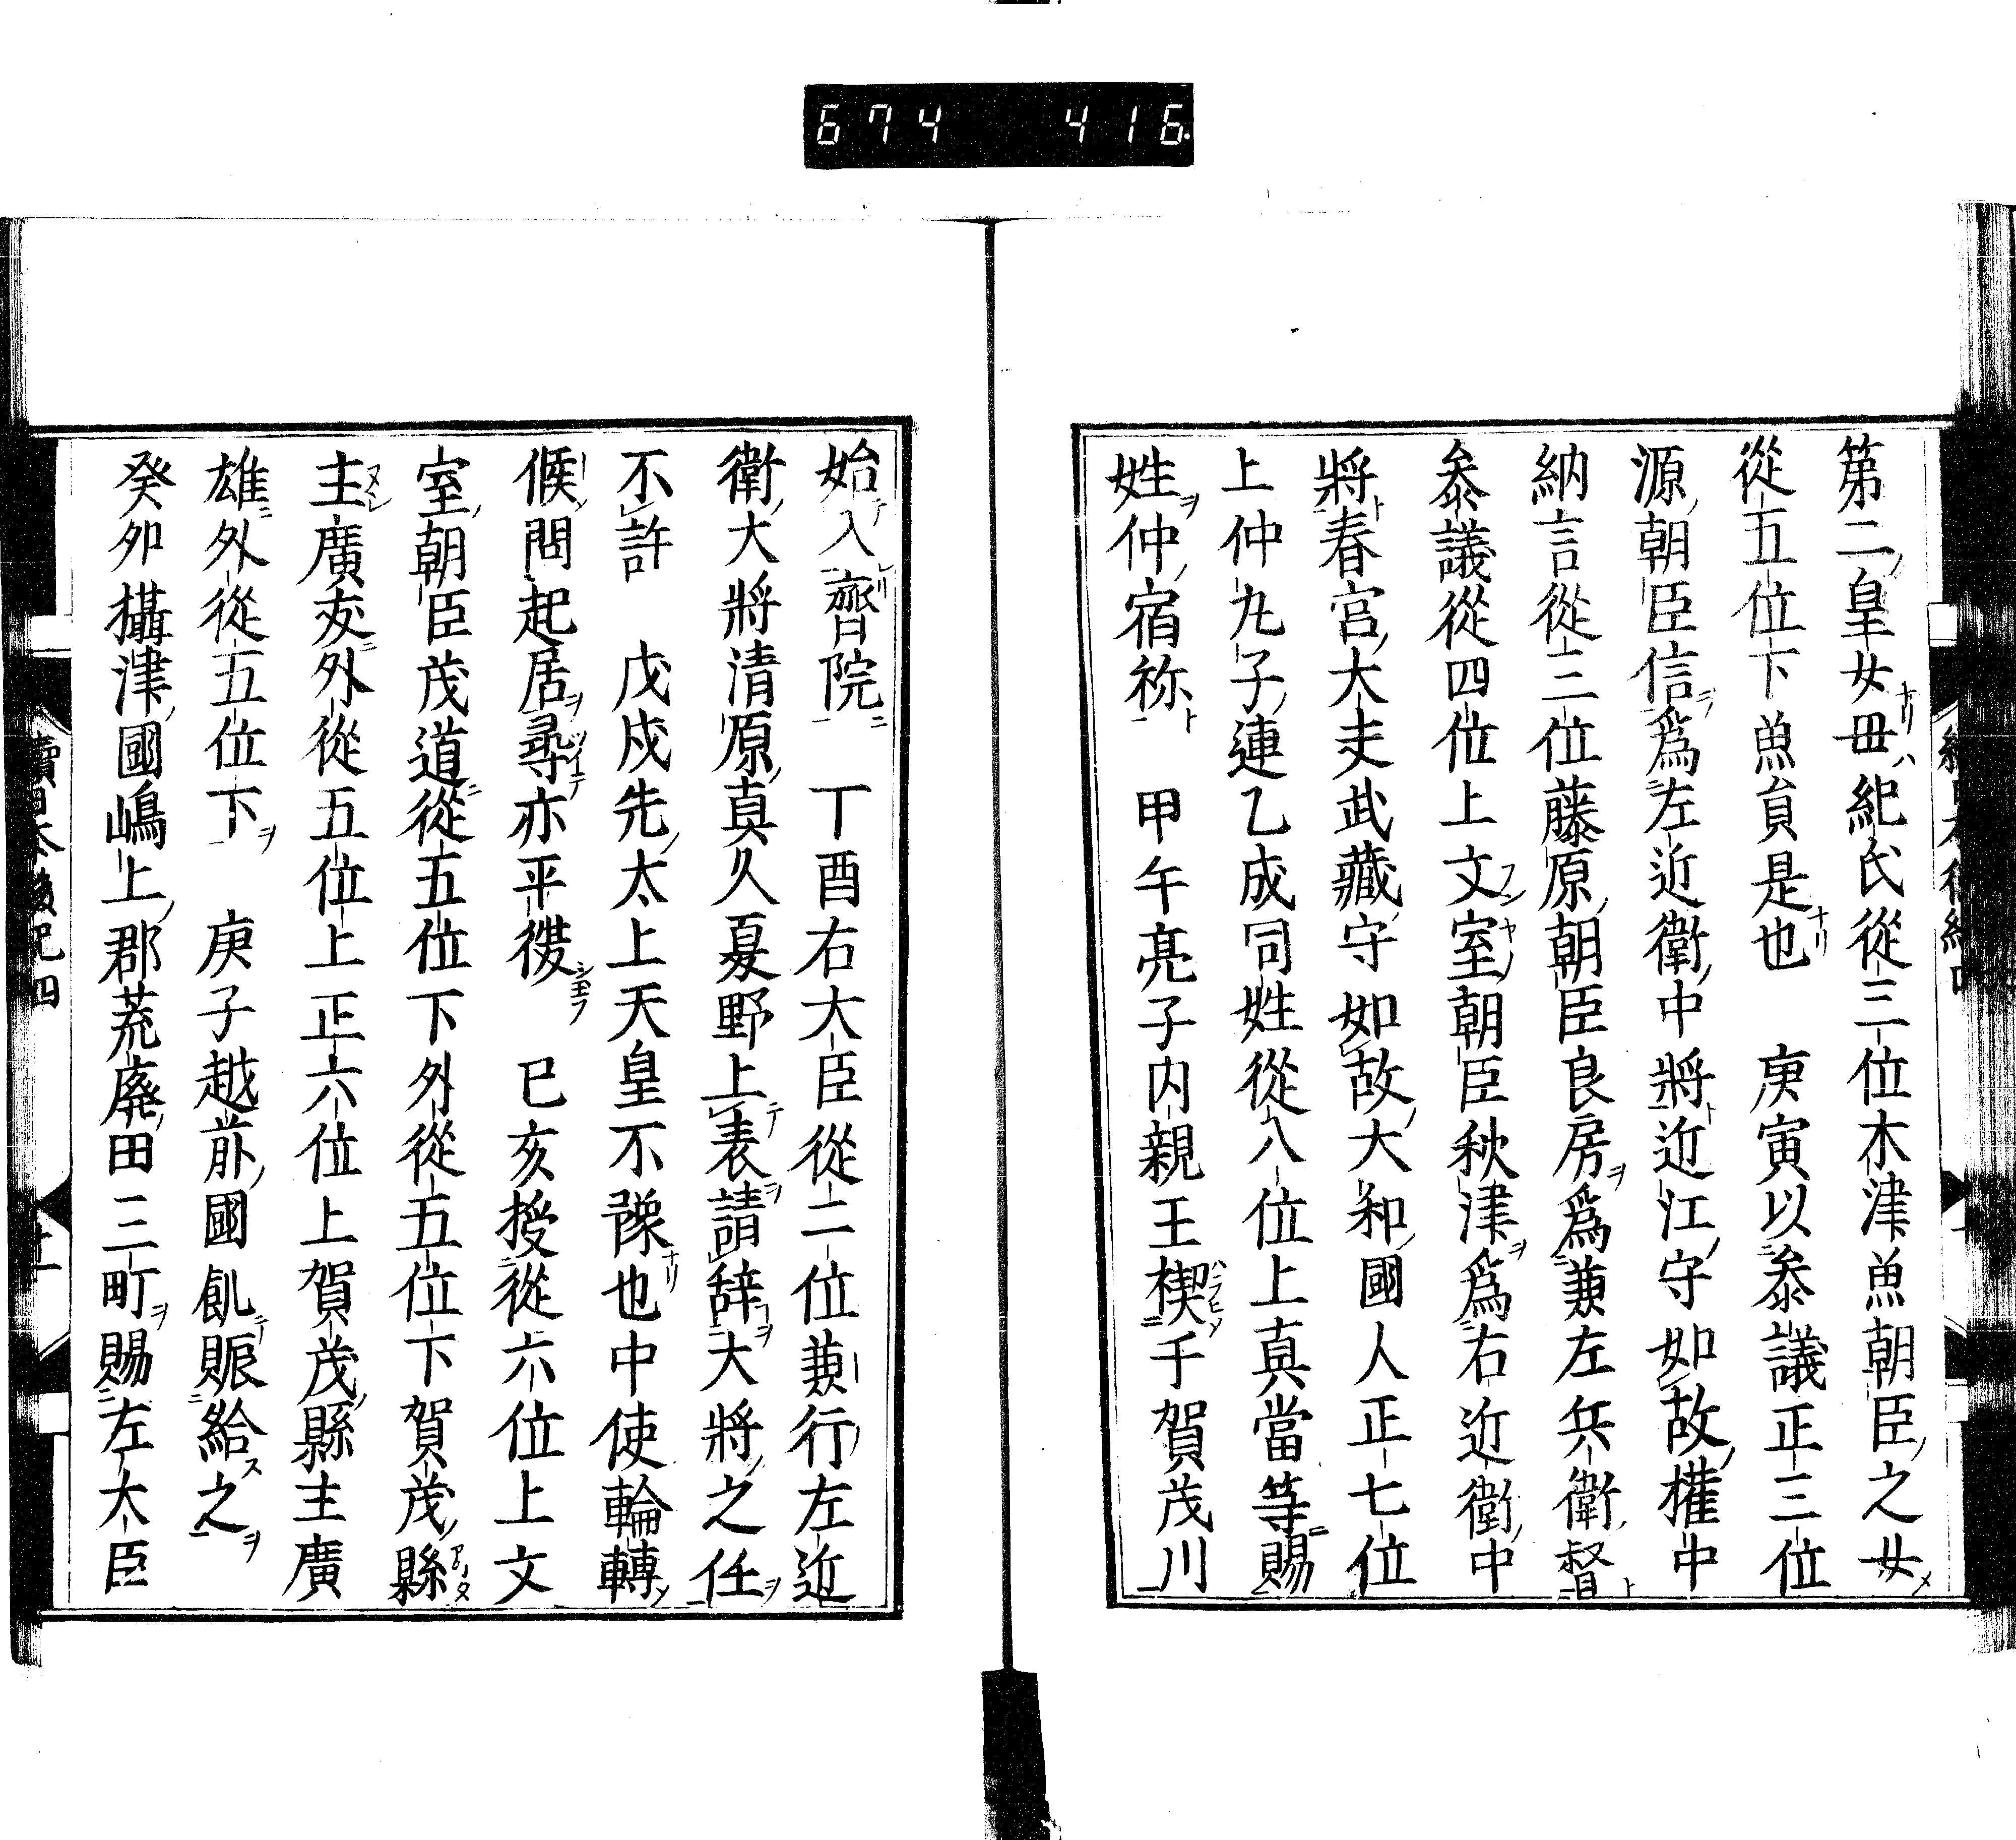 674 416
第二皇女毋紀氏從三位木津魚朝臣之女
從五位下魚貟是也　庚寅以叅議正三位
源朝臣信爲左近衛中將近江守如故權中
納言從三位藤原朝臣良房爲兼左兵衛督
叅議從四位上文室朝臣秋津爲右近衛中
將春宮大夫武藏守如故大和國人正七位
上仲丸子連乙成同姓從八位上真當等賜
姓仲宿祢　甲午亮子内親王禊千賀茂川
始入齊院　丁酉右大臣從二位兼行左近
衛大將清原真久夏野上表請辞大將之任
不許　戊戍先太上天皇不豫也中使輪轉
候問起居尋亦平復　已亥授從六位上文
室朝臣茂道從五位下外從五位下賀茂縣
主廣友外從五位上正六位上賀茂縣主廣
雄外從五位下　庚子越前國飢賑給之
癸卯攝津國嶋上郡荒廢田三町賜左大臣